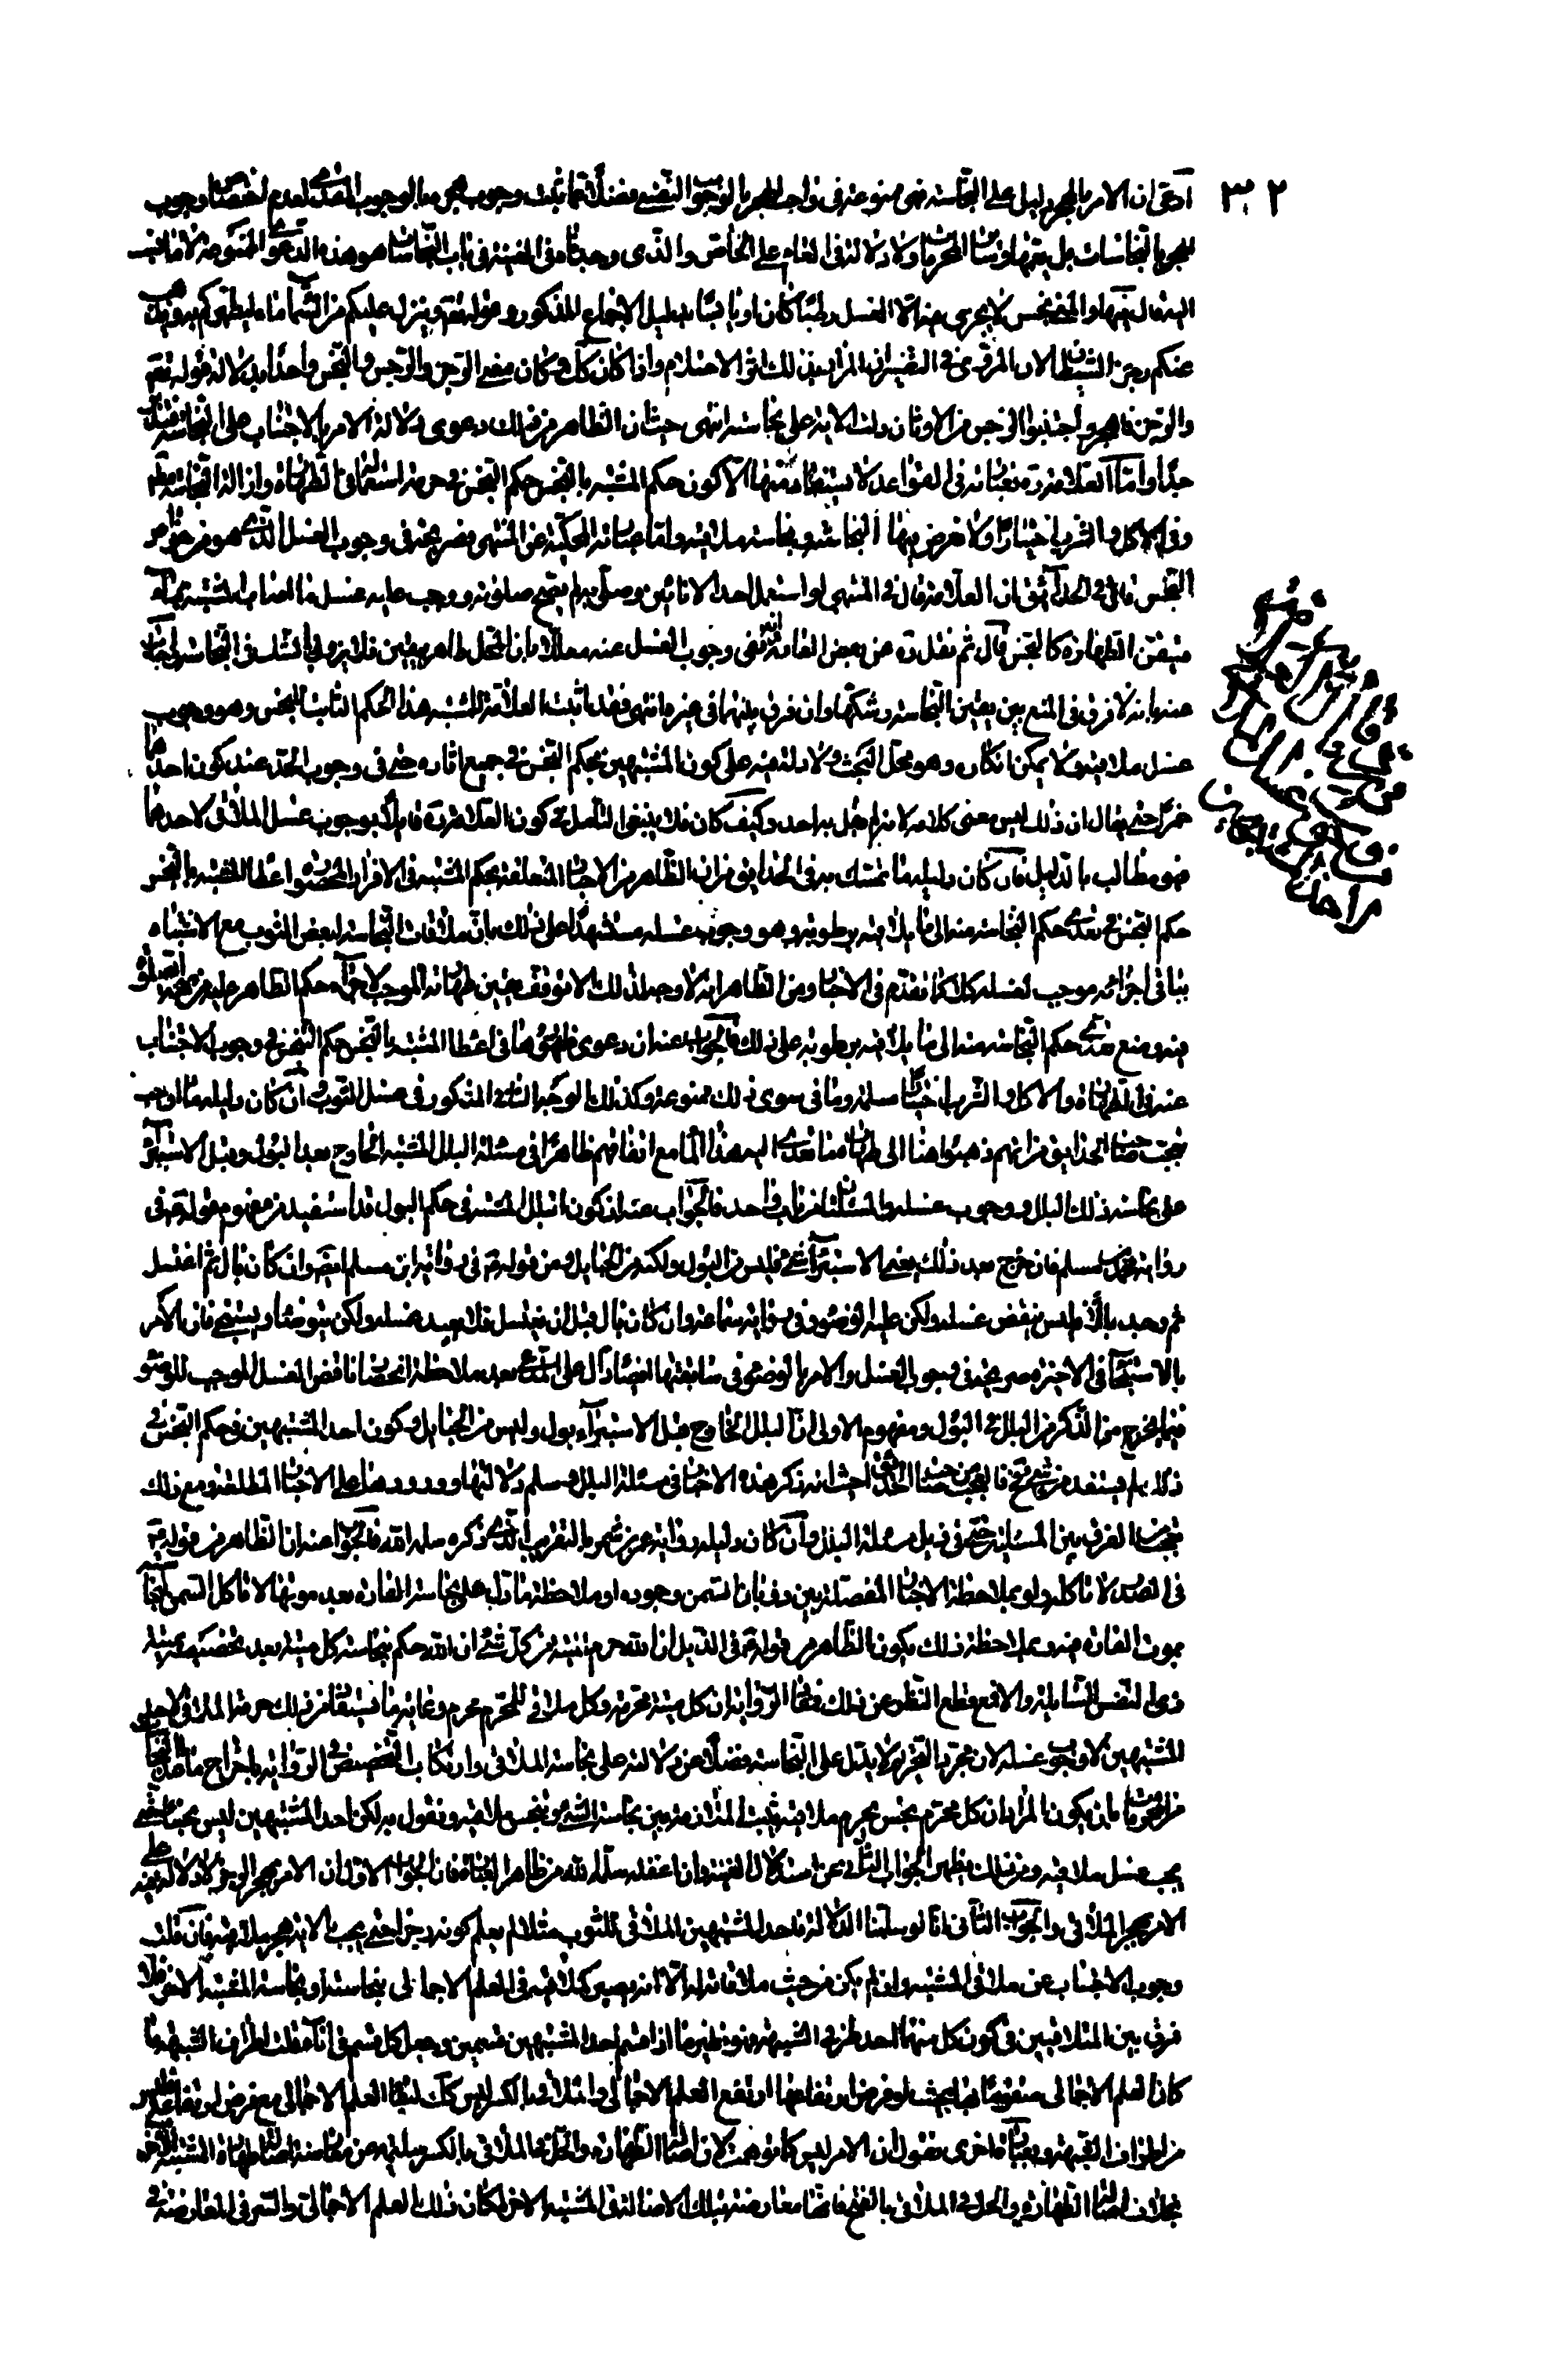 ٣٢
ادعى ان الامر بالهجر دليل على النجاسة فهى ممنوعة فى
للهجر بالنجاسات بل يعمها وسائر المحرمات ولا دلالة فى العام على الخاص والذى وجدناه فى الغنية فى باب النجاسات هو هذه
اليه قال فيها والمنى نجس لا يجزى فيه الا الغسل رطبا كان او يابسا بدليل الاجماع المذكور وقوله تعالى وينزل عليكم من السماء ماء ليطهركم به ويذهب
عنكم رجز الشيطان لان المروى فى التفسير ان المراد بذلك اثر الاحتلام واذا كان كك وكان معنى الرجز والرجس والنجس واحدا بدلالة قوله تعالى
والرجز فاهجر واجتنبوا الرجس من الاوثان دلت الاية على نجاسته انتهى حيث ان الظاهر من ذلك دعوى دلالة الامر بالاجتناب على النجاسة
جدا واما العلامة ره فعبارته فى القواعد لا يستفاد منها الا كون حكم المشتبه بالنجس حكم النجس فى حرمة استعماله فى الطهارة وازالة النجاسة
وفى الاكل والشرب اختيارا ولا تعرض فيها النجاسة ونجاسة ملاقيه واما عبارته المحكية عن المنتهى فصريحة فى وجوب الغسل الذى هو من خواص
النجس قال فى الحدائق ان العلامة قال فى المنتهى لو استعمل احد الانائين وصلى به لم يصح صلوته ووجب عليه غسل ما اصابه المشتبه بماء
متيقن الطهارة كالنجس قال ثم نقل ره عن بعض العامة انه نفى وجوب الغسل عنه معللا بان المحل طاهر بيقين فلا يزول بالشك فى النجاسة
عنه بانه لا فرق فى المنع بين يقين النجاسة وشكها وان فرق بينهما فى غيره انتهى فقد اثبت العلامة للمشتبه هذا الحكم الثابت للنجس وهو وجوب
غسل ملاقيه ولا يمكن انكاره وهو محل البحث ولا دلالة فيه على كون المشتبهين بحكم النجس فى جميع اثاره حتى فى وجوب الحد عند كون احدهما
خمرا حتى يقال ان ذلك ليس معنى كلامه لانه لم يقل به احد وكيف كان فلا ينبغى التأمل فى كون العلامة ره قائلا بوجوب غسل الملاقى لاحدهما
فهو مطالب بالدليل فان كان دليله ما تمسك به فى الحدائق من ان الظاهر من الاخبار المتعلقة بحكم المشتبه فى الافراد المحصورة اعطاء المشتبه بالنجس
حكم النجس فى تعدى حكم النجاسة منه الى ما يلاقيه برطوبة وهو وجوب غسله مستشهدا على ذلك بان ملاقات النجاسة لبعض الثوب مع الاشتباه
بباقى اجزائه موجب لغسله كله كما تقدم فى الاخبار ومن الظاهر انه لا وجه لذلك الا توقف يقين طهارته الموجب لاجراء حكم الظاهر عليه من صحة الصلوة
فيه ومنع تعدى حكم النجاسة منه الى ما يلاقيه برطوبة على ذلك فالجواب عنه ان دعوى ظهورها فى اعطاء المشتبه بالنجس حكم النجس فى وجوب الاجتناب
عنه فى الطهارة والاكل والشرب اختيارا مسلمة وما فى سوى ذلك ممنوعة وكذلك الوجه الثانى المذكور فى غسل الثوب وان كان دليله ما اوجب
تعجب صاحب الحدائق من انهم ذهبوا هنا الى طهارة ما تعدى اليه هذا الماء مع اتفاقهم ظاهرا فى مسئلة البلل المشتبه الخارج بعد البول وقبل الاستبراء
على نجاسة ذلك البلل ووجوب غسله والمسئلتان من باب واحد فالجواب عنه ان كون البلل المشتبه فى حكم البول قد استفيد من مفهوم قوله ع فى
رواية محمد بن مسلم فان خرج بعد ذلك يعنى الاستبراء شئ فليس من البول ولكنه من الحبايل ومن قوله ع فى رواية ابن مسلم ايضا وان كان بال ثم اغتسل
ثم وجد بللا فليس ينقض غسله ولكن عليه الوضوء وفى رواية سماعة وان كان بال قبل ان يغتسل فلا يعيد غسله ولكن يتوضأ ويستنجى فان الامر
بالاستنجاء فى الاخيرة صريحة فى وجوب الغسل والامر بالوضوء فى سابقتها ايضا دال على المدعى بعد ملاحظة انحصار ناقض الغسل الموجب للوضوء
فيما يخرج من الذكر من البلل فى البول ومفهوم الاولى ان البلل الخارج قبل الاستبراء بول وليس من الحبايل وكون احد المشتبهين فى حكم النجس فى
ذلك لم يستفد من شئ فالعجب من صاحب الحدائق حيث انه ذكر هذه الاخبار فى مسئلة البلل وسلم دلالتها وورودها على الاخبار المطلقة ومع ذلك
تعجب من الفرق بين المسئلتين حتى فى ذيل مسئلة البلل وان كان دليله رواية عمرو بن شمر بالتقريب الذى ذكره سلمه الله فالجواب عنه ان الظاهر من قوله ع
فى الصدر لا تأكله ولو بملاحظة الاخبار المفصلة بين ذوبان السمن وجموده او ملاحظة ما دل على نجاسة الفارة بعد موتها لا تأكل السمن لنجاسته
بموت الفارة فيه وبملاحظة ذلك يكون الظاهر من قوله ع فى الذيل ان الله حرم الميتة من كل شئ ان الله حكم بنجاسة كل ميتة بعد تخصيصه بميتة
ذى النفس السائلة والا فمع قطع النظر عن ذلك فمفاد الرواية ان كل ميتة محرمة وكل ملاقى للمحرم محرم وغاية ما يستفاد من ذلك حرمة الملاقى لاحد
المشتبهين لا وجوب غسله لان مجرد التحريم لا يدل على النجاسة فضلا عن دلالته على نجاسة الملاقى وارتكاب التخصيص فى الرواية باخراج ما عدا النجاسات
من المحرمات بان يكون المراد ان كل محرم نجس يحرم ملاقيه يثبت الملازمة بين نجاسة الشئ وتنجس ملاقيه ونقول به لكن احد المشتبهين ليس نجسا حتى
يجب غسل ملاقيه ومن ذلك يظهر الجواب الثانى عن استدلال الغنية وان اغفله سلمه الله من ظاهر العبارة فان الجواب الاول ان الامر بهجر الرجز لا دلالة فيه على
الامر بهجر الملاقى والجواب الثانى انا لو سلمنا الدلالة فاحد المشتبهين الملاقى للثوب مثلا لم يعلم كونه رجزا حتى يجب بالاية هجر ملاقيه فان قلت
وجوب الاجتناب عن ملاقى المشتبه وان لم يكن من حيث ملاقاته له الا انه يصير كملاقيه فى العلم الاجمالى بنجاسته او نجاسة المشتبه الاخر فلا
فرق بين المتلاقيين فى كون كل منهما احد طرفى الشبهة فهو نظير ما اذا قسم احد المشتبهين قسمين وجعل كل قسم فى اناء قلت اطراف الشبهة ما
كان العلم الاجمالى متقوما بها بحيث لو فرض ارتفاعها ارتفع العلم الاجمالى والملاقى بالكسر ليس كك لبقاء العلم الاجمالى مع فرض ارتفاعه
من اطراف الشبهة وبعبارة اخرى نقول ان الامر ليس كما توهمت لان اصالة الطهارة والحل فى الملاقى بالكسر سليمة عن معارضة اصالة طهارة المشتبه الاخر
بخلاف اصالة الطهارة والحل فى الملاقى بالفتح فانها معارضة بتلك الاصالة فى المشتبه الاخر لمكان ذلك العلم الاجمالى والسر فى المعارضة